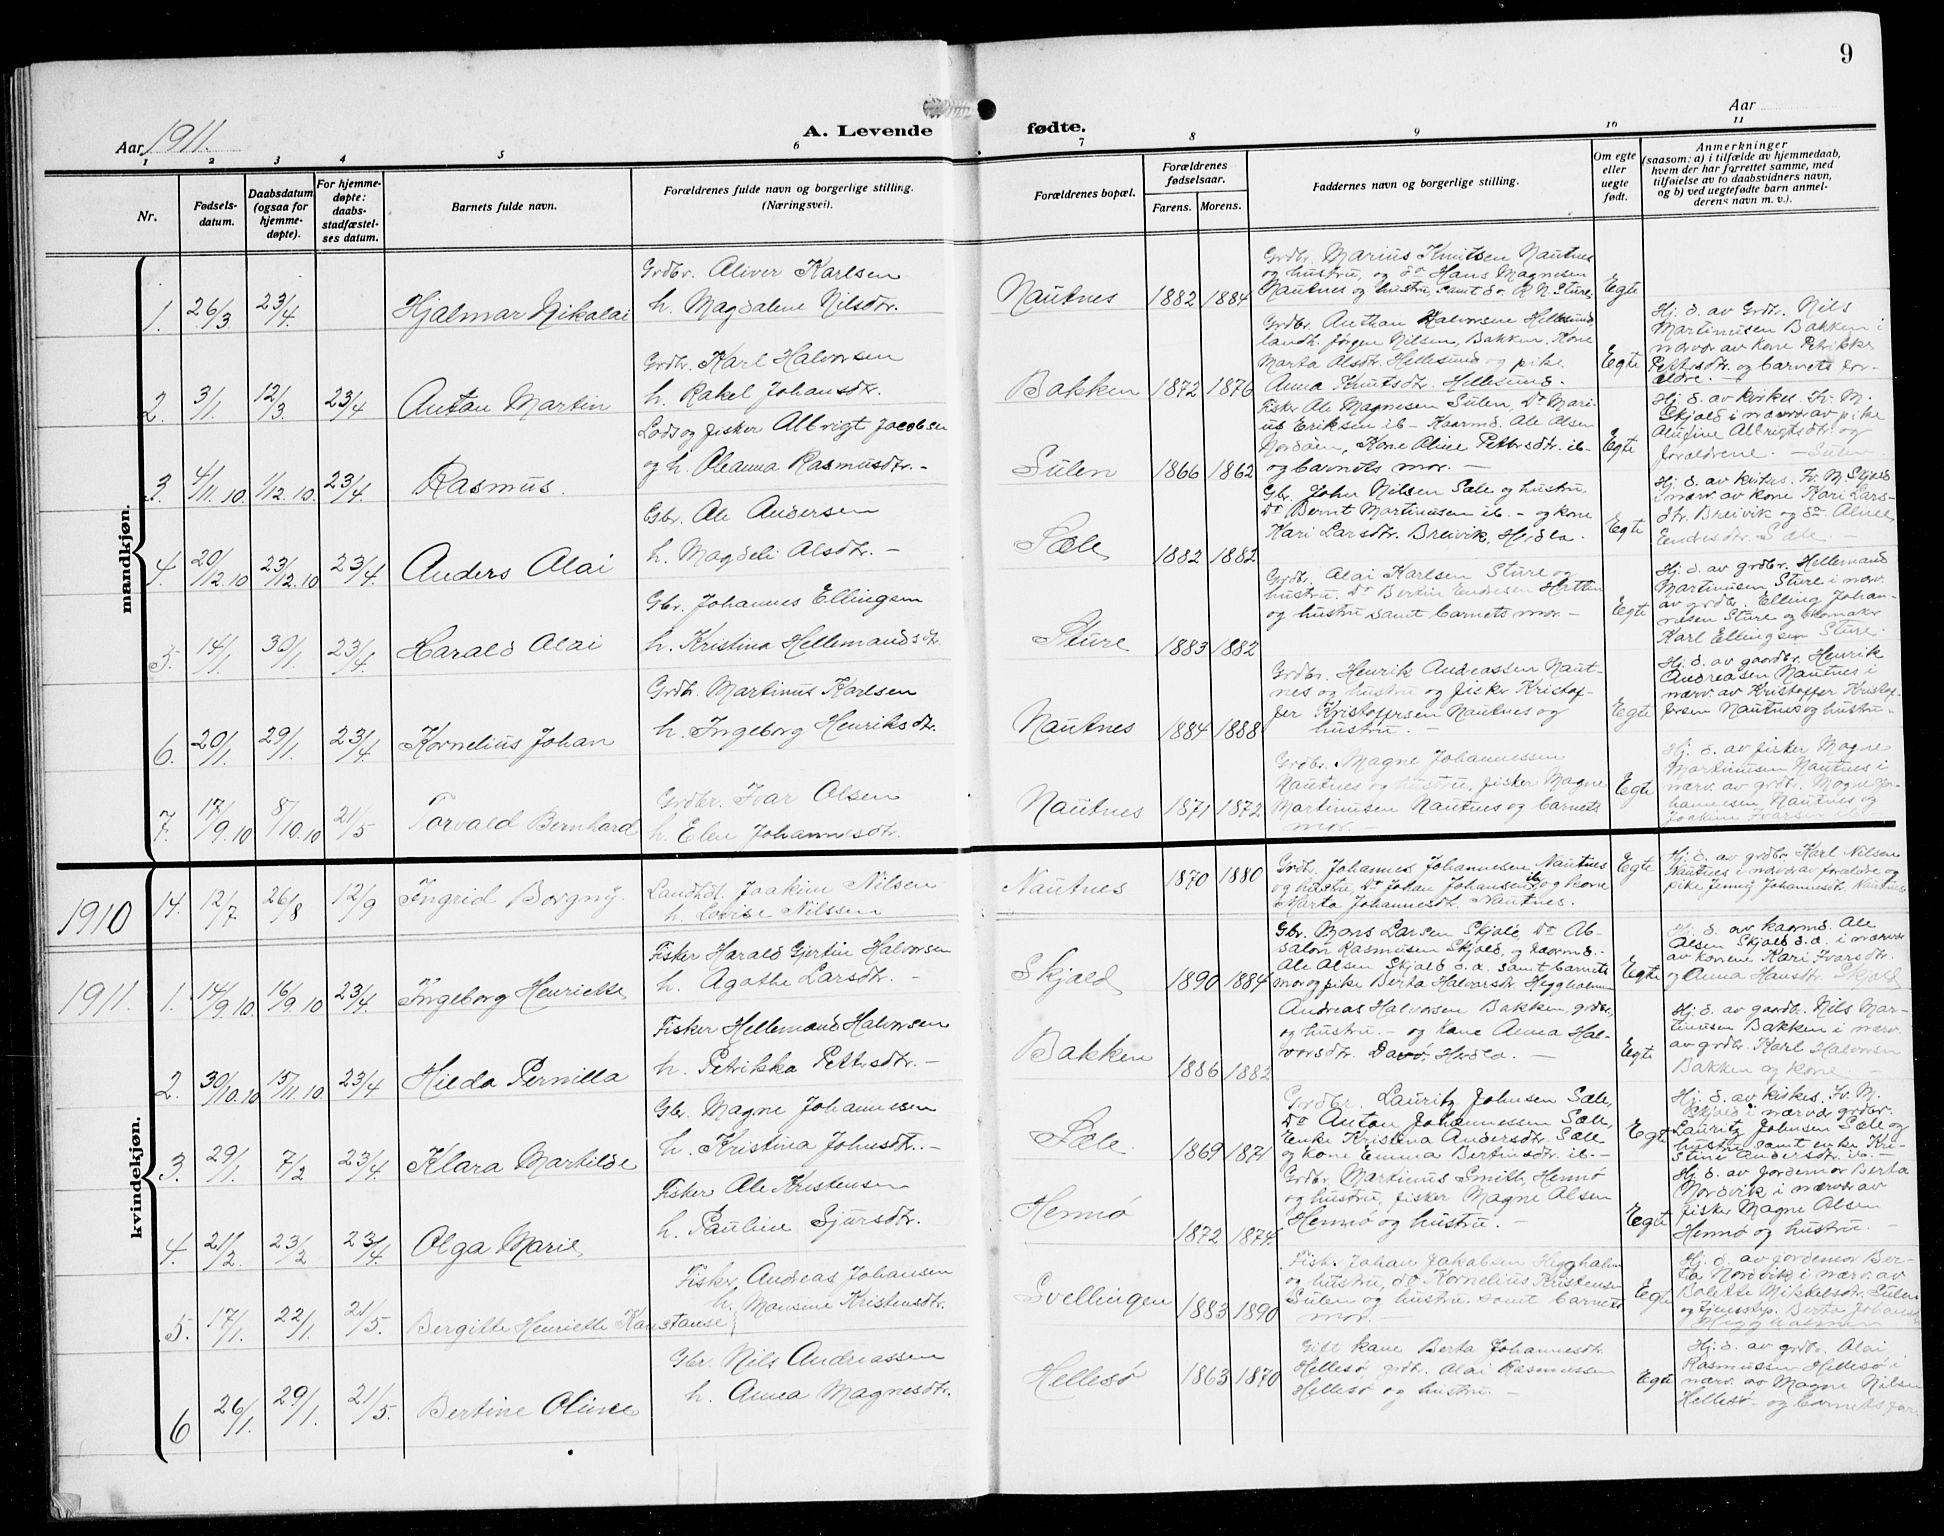 9
Aar 1911.
A. Levende fødte.
Aar
1 2 3 4 5 6 7 8 9 10 11
Nr.
Fødsels-
datum.
Daabsdatum
(ogsaa for
hjemme-
døpte).
For hjemme-
døpte:
daabs-
stadfæstel-
ses datum.
Barnets fulde navn.
Forældrenes fulde navn og borgerlige stilling.
(Næringsvei).
Forældrenes bopæl.
Forældrenes
fødselsaar.
Farens. Morens.
Faddernes navn og borgerlige stilling.
Om egte
eller
uegte
født.
Anmerkninger
(saasom: a) i tilfælde av hjemmedaab,
hvem der har forrettet samme, med
tilføielse av to daabsvidners navn,
og b) ved uegtefødte barn anmel-
derens navn m. v.).
mandkjøn.
1. 26/3 23/4 Hjalmar Nikolai
Grdbr. Aliver Karlsen
h. Magdalene Nilsdtr.
Nautnes 1882 1884
Grdbr. Marius Knutsen Nautnes
og hustru, og do Hans Magnesen
Nautnes og hustru, samt do. R. N. Sture,
Egte
2. 3/1 12/3 23/4 Anton Martin
Grdbr. Karl Halvorsen
h. Rakel Johansdtr.
Bakken 1872 1876
Grdbr. Anthon Halvorsen Hellesund,
landh. Jørgen Nilsen, Bakken, Kone
Marta Alsdtr. Hellesund og pike
Anna Knutsdtr. Hellesund.
Egte
Hj. d. av Grdr. Nils
Martinusen Bakken i
nærvær av kone Petrikke
Pettersdtr. og barnets for-
ældre. —
3. 4/11.10. 1/12.10. 23/4 Rasmus.
Lods og fisker Albrigt Jacobsen
og h. Oleanna Rasmusdtr. —
Sulen 1866 1862
Fisker Ole Magnesen Sulen, Do Mari-
us Eriksen ib — Kaarmd. Ole Olsen
Nordøen, Kone Oline Pettersdtr. ib —
og barnets mor. —
Egte
Hj. d. av kirkes. Fr. M.
Skjold i nærvær av pike
Alufine Albrigtsdtr. og
forældrene. — Sulen
4. 20/12.10 23/12.10 23/4. Anders Olai
Gbr. Ole Andersen
h. Magdeli Olsdtr. —
Sæle 1882 1882
Gbr. John Nilsen Sæle og hustru,
Do Bernt Martinusen ib. — og kone
Kari Larsdtr. Breivik, Hjelda.
Egte
Hj. d. av kirkes. Fr. M. Skjold
i nærv. av kone Kari Lars-
dtr. Breivik og do Oline
Endresdtr. Sæle. —
5. 14/1. 30/1. 23/4. Harald Olai
Gbr. Johannes Ellingsen
h. Kristina Hellemandsdtr.
Sture 1883 1882
Grdbr. Olai Karlsen Sture og
hustru. Do Bertin Endresen
og hustru samt barnets mor. —
Egte
Hj. d. av grdbr. Hellemand
Martinusen Sture i nærv.
av grdbr. Elling Johan-
nesen Sture og skomaker
Karl Ellingsen Sture.
6. 20/1. 29/1. 23/4. Kornelius Johan
Grdbr. Martinus Karlsen
h. Ingeborg Henriksdtr.
Nautnes 1884 1888
Grdbr. Henrik Andreassen Naut-
nes og hustru og fisker Kristof-
fer Kristofersen Nautnes og
hustru. —
Egte
Hj. d. av gaardbr. Henrik
Andreasen Nautnes i
nærv. av Kristoffer Kristof-
fersen Nautnes og hustru. —
7. 17/9.10 8/10.10 21/5 Torvald Bernhard
Grdbr. Ivar Olsen
h. Elen Johannesdtr.
Nautnes 1871 1872
Grdbr. Magne Johannessen
Nautnes og hustru, fisker Magne
Martinusen Nautnes og barnets
mor. —
Egte
Hj. d. av fisker Magne
Martinusen Nautnes i
nærv. av grdbr. Magne Jo-
hannesen, Nautnes og
Joakim Ivarsen ib.
1910
14. 12/7 26/8 12/9 Ingrid Borgny.
Landhdl. Joakim Nilsen
h. Lovise Nilssen
Nautnes 1870 1880
Grdb. Johannes Johannesen Nautnes
og hustru, Do Johan Johansen ib og kone
Marta Johannesdtr. Nautnes.
Egte
Hj. d. av grdbr. Karl Nilsen
Nautnes i nærvær av forældre og
pike Jenny Johannesdtr. Nautnes
1911.
kvindekjøn.
1. 14/9.10 16/9.10 23/4. Ingeborg Henriette
Fisker Harald Gjertin Halvorsen
h. Agathe Larsdtr. —
Skjold 1890 1884
Gbr. Mons Larsen Skjold, Do Ab-
salon Rasmusen Skjold, og kaarmd.
Ole Olsen Skjold s. a. samt barnets
mor og pike Berta Halvorsdtr. Heggholmen
Egte
Hj. d. av kaarmd. Ole
Olsen Skjold s. a. i nærvær
av konene Kari Ivarsdtr.
og Anna Hansdtr. Skjold
2. 30/10.10 15/11.10 23/4 Hilda Pernilla
Fisker Hellemand Halvorsen
h. Petrikka Pettersdtr. —
Bakken 1886 1882
Andreas Halvorsen Bakken, grdbr,
og hustru. — og kone Anna Hal-
vorsdtr. Davø, Hjelda. —
Egte
Hj. d. av gaardb. Nils Mar-
tinusen Bakken i nærv.
av grdbr. Karl Halvorsen
Bakken og kone.
3. 29/1 7/2 23/4 Klara Mathilde
Gbr. Magne Johannesen
h. Kristina Johnsdtr. —
Sæle. 1869 1871
Grdbr. Lauritz Johnsen Sæle,
Do Anton Johannessen Sæle,
Enke Kristina Andersdtr. Sæle
og kone Emma Bertinsdtr. ib. —
Egte
Hj. d. av kirkes. Fr. M.
Skjold i nærvær grdbr.
Lauritz Johnsen Sæle og
hustru samt enke Kri-
stine Andersdtr. ib. —
4. 21/2. 23/2 23/4. Olga Marie
Fisker Ole Kristensen
h. Pauline Sjursdtr.
Hennø 1872 1874.
Grdbr. Martinus Smith, Hennø
og hustru, fisker Magne Olsen
Hennø og hustru. —
Egte
Hj. d. av jordemor Berta
Nordvik i nærvær av
fisker Magne Olsen
Hennø og hustru. —
5. 17/1. 22/1. 21/5. Bergitte Henriette Konstanse
Fisker Andreas Johansen
h. Monsine Kristensdtr.
Svellingen 1883 1890
Fisk. Johan Jakobsen Heggholm.
og hustru, do Kornelius Kristensen
Sulen og hustru. samt barnets
mor. —
Egte
Hj. d. av jordemor Ber-
ta Nordvik i nærv. av
Bolette Mikkelsdtr. Sulen
og tjenestep. Berta Johansd.
Heggholmen
6 26/1. 29/1. 21/5. Bertine Oline
Gbr. Nils Andreassen
h. Anna Magnesdtr.
Hellesø 1863 1870
Gift kone Berta Johannesdtr.
Hellesø, grdb. Olai Rasmussen
Hellesø og hustru. —
Egte
Hj. d. av grdb. Olai
Rasmussen Hellesø i
nærv. av Magne Nilsen
Hellesø. og barnets far.